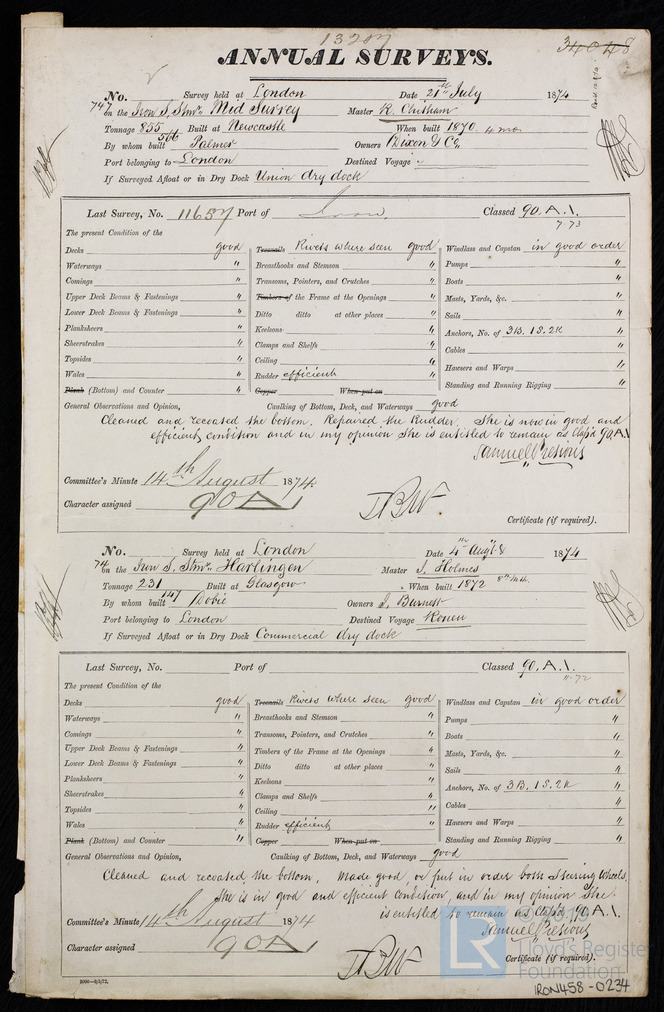 13207
34048
ANNUAL SURVEYS.
No. Survey held at London Date 21st July 1874
747 on the Iron S. Stmr. Mid Surrey Master R. Chisham
Tonnage 855 566 Built at Newcastle When built 1870. 4 mo.
By whom built Palmer Owners Dixon & Co.
Port belonging to London Destined Voyage
If Surveyed Afloat or in Dry Dock Union dry dock
Last Survey, No. 11657 Port of Iron. Classed 90. A. 1.
7.73
The present Condition of the
Decks good Treenails Rivets where seen good Windlass and Capstan in good order
Waterways " Breasthooks and Stemson " Pumps "
Comings " Transoms, Pointers, and Crutches " Boats "
Upper Deck Beams & Fastenings " Timbers of the Frame at the Openings " Masts, Yards, &c. "
Lower Deck Beams & Fastenings " Ditto ditto at other places " Sails "
Planksheers " Keelsons " Anchors, No. of 3B. 1S. 2K "
Sheerstrakes " Clamps and Shelfs " Cables "
Topsides " Ceiling " Hawsers and Warps "
Wales " Rudder efficient Standing and Running Rigging "
Plank (Bottom) and Counter " Copper When put on
General Observations and Opinion, Caulking of Bottom, Deck, and Waterways good
Cleaned and recoated the bottom. Repaired the Rudder. She is now in good and
efficient condition and in my opinion She is entitled to remain as Class'd 90. A. 1
Samuel Presious
Committee's Minute 14th August 1874.
Character assigned 90A1
Certificate (if required).
No. Survey held at London Date 4th Augt & 8 1874
74 on the Iron S. Stmr. Harlingen Master J. Holmes
Tonnage 231 147 Built at Glasgow When built 1872 8th mth.
By whom built Dobie Owners J. Burnett
Port belonging to London Destined Voyage Rouen
If Surveyed Afloat or in Dry Dock Commercial dry dock
Last Survey, No. Port of Classed 90. A. 1.
11.72
The present Condition of the
Decks good Treenails Rivets where seen good Windlass and Capstan in good order
Waterways " Breasthooks and Stemson " Pumps "
Comings " Transoms, Pointers, and Crutches " Boats "
Upper Deck Beams & Fastenings " Timbers of the Frame at the Openings " Masts, Yards, &c. "
Lower Deck Beams & Fastenings " Ditto ditto at other places " Sails "
Planksheers " Keelsons " Anchors, No. of 3B. 1S. 2K "
Sheerstrakes " Clamps and Shelfs " Cables "
Topsides " Ceiling " Hawsers and Warps "
Wales " Rudder efficient " Standing and Running Rigging "
Plank (Bottom) and Counter " Copper When put on
General Observations and Opinion, Caulking of Bottom, Deck, and Waterways good
Cleaned and recoated the bottom. Made good or put in order both Steering Wheels.
She is in good and efficient condition, and in my opinion She
is entitled to remain as Class'd 90. A. 1.
Samuel Presious
Committee's Minute 14th August 1874
Character assigned 90A1
Certificate (if required).
LR © 2019 Lloyd's Register Foundation
IRON458-0234